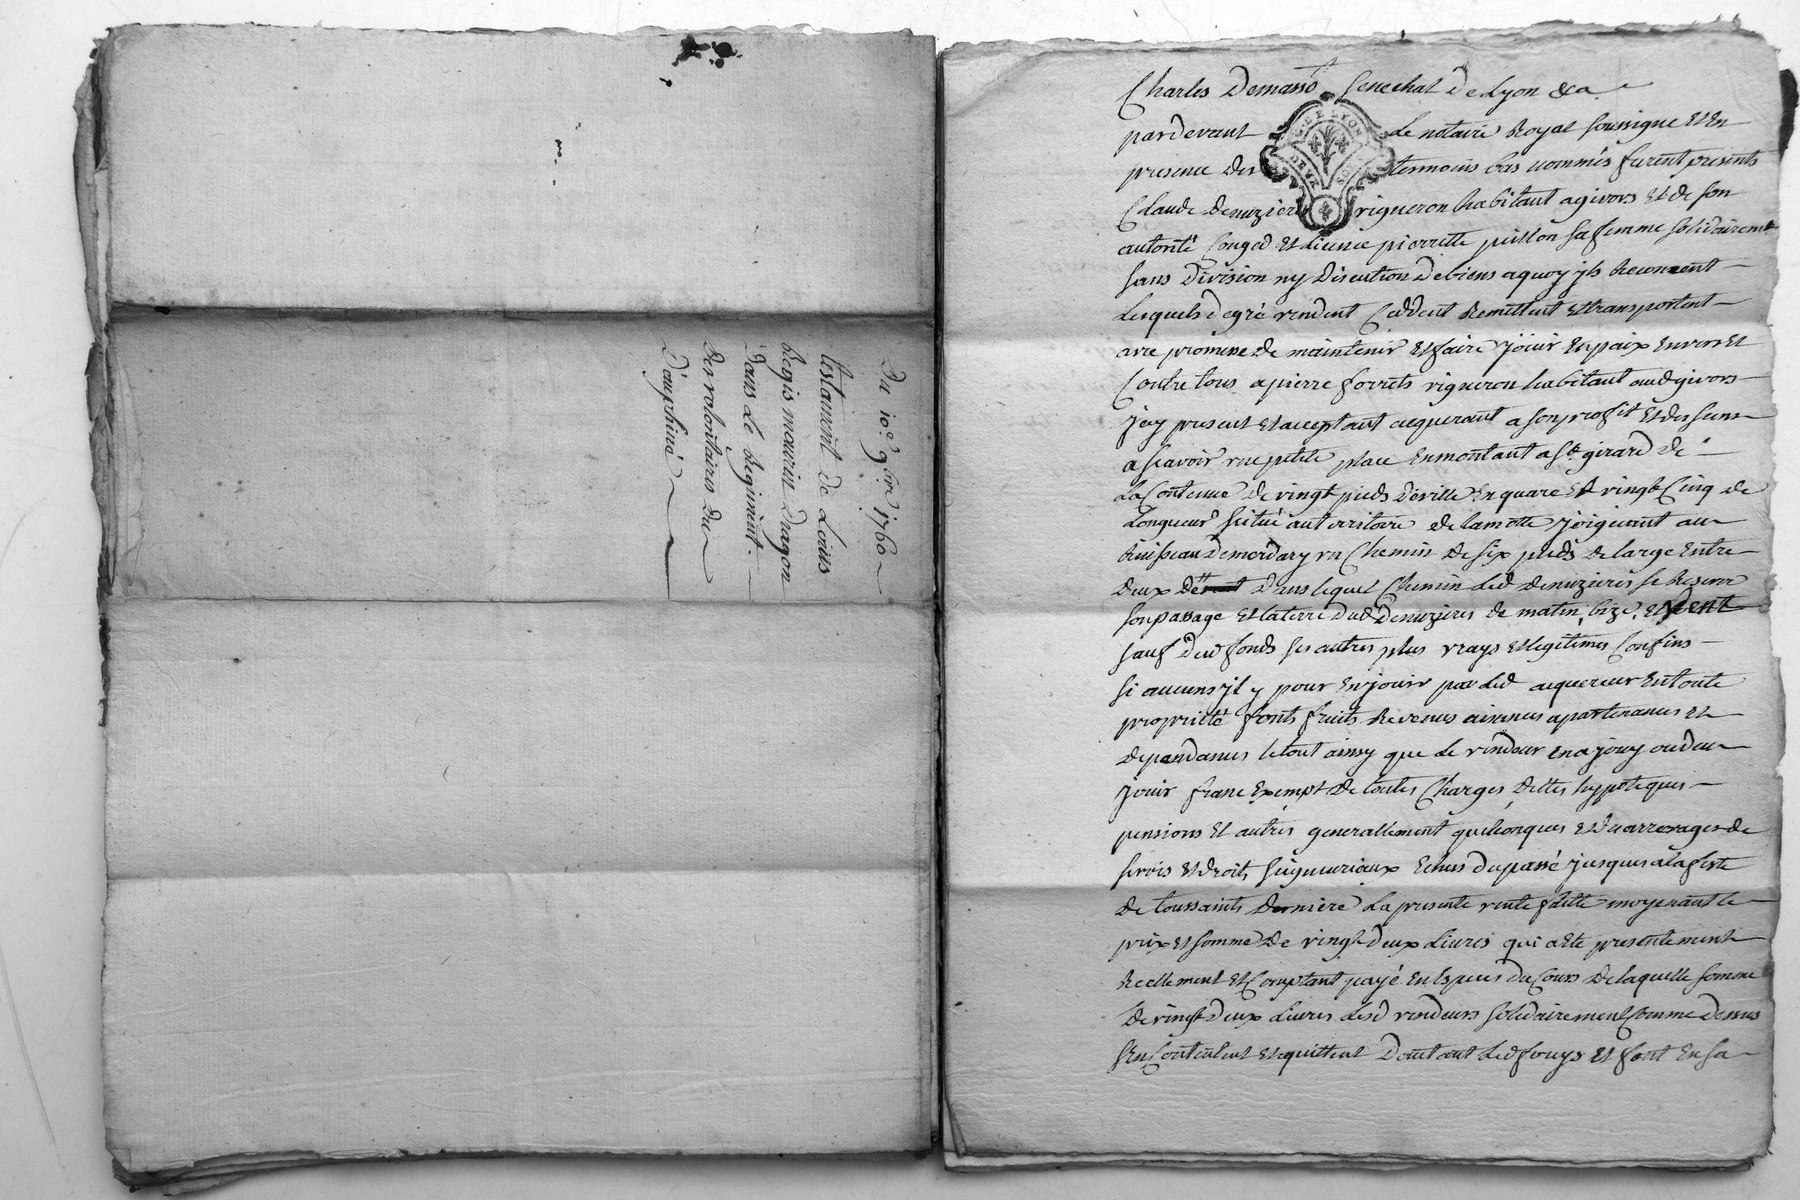 Du 10e. 9bre. 1760
testament de Louis
Regis maurin Dragon
Dans Le Regiment
des volontaires du
Dauphiné
Charles Demasso Senechal De Lyon &a
pardevant Le notaire Royal soussigné Et En
presence des temoins bas nommés furent presents
Claude Denuziere vigneron habitant a givors Et de son
autorité Congéd Et Licence pierrette suisson sa femme solidairemt
sans Division ny Discution De biens a quoy jls Renoncent
Lesquels de gré vendent Cedent Remettent Et transportent
avec promesse de maintenir Et faire jouir En paix Envers Et
Contre tous a pierre forrets vigneron habitant aud givors
jcy present Et acceptant acquerant a son profit Et des siens
a scavoir une petite place En montant a St girard de
La Contenue De vingt pieds De ville En quaré Et vingt Cinq de
Longueur scitué au territoire de lamotte joignant au
Ruisseau de mordary un Chemin de six pieds de large Entre
deux Dans lequel Chemin Led Denuzieres se Reserve
son passage Et la terre dud Denuzieres de matin, bize, Et vent
sauf dud fonds ses autres plus vrays Et legitimes Confins
si aucuns jl y pour En jouir par Led acquereur En toute
proprieté fonts fruits Revenus aisances apartenances Et
dependances le tout ainsy que Le vendeur En a jouy ou deu
jouir franc Exempt De toutes Charges Dettes hypoteques
pensions Et autres generallement quelconques Et Des arrerages de
servis Et Droits seigneuriaux Echus du passé jusques a la feste
De toussaints Derniere La presente vente faitte moyenant le
prix Et somme De vingt deux Livres qui a Eté presentement
Reellement Et Comptant payé En Especes du Cours De laquelle somme
De vingt deux Livres Lesd vendeurs solidairement Comme dessus
s'en Contentent Et quittent D'autant Led forrets Et font En sa